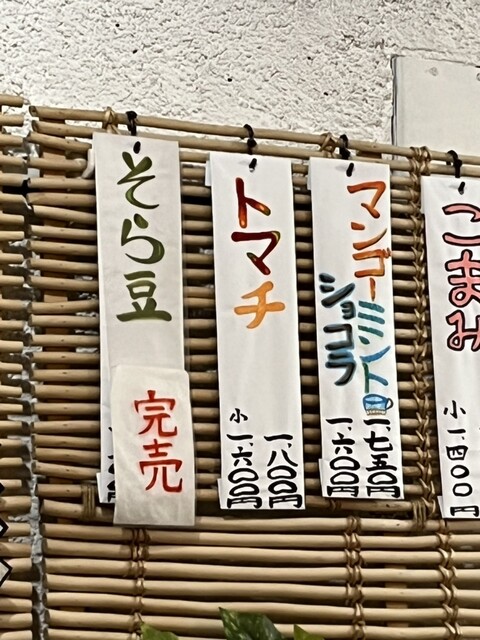 こまみ
小 一.四〇〇円
マンゴーミント
一.七五〇円
ショコラ
一.六〇〇円
トマチ
一.八〇〇円
小 一.六〇〇円
そら豆
完売